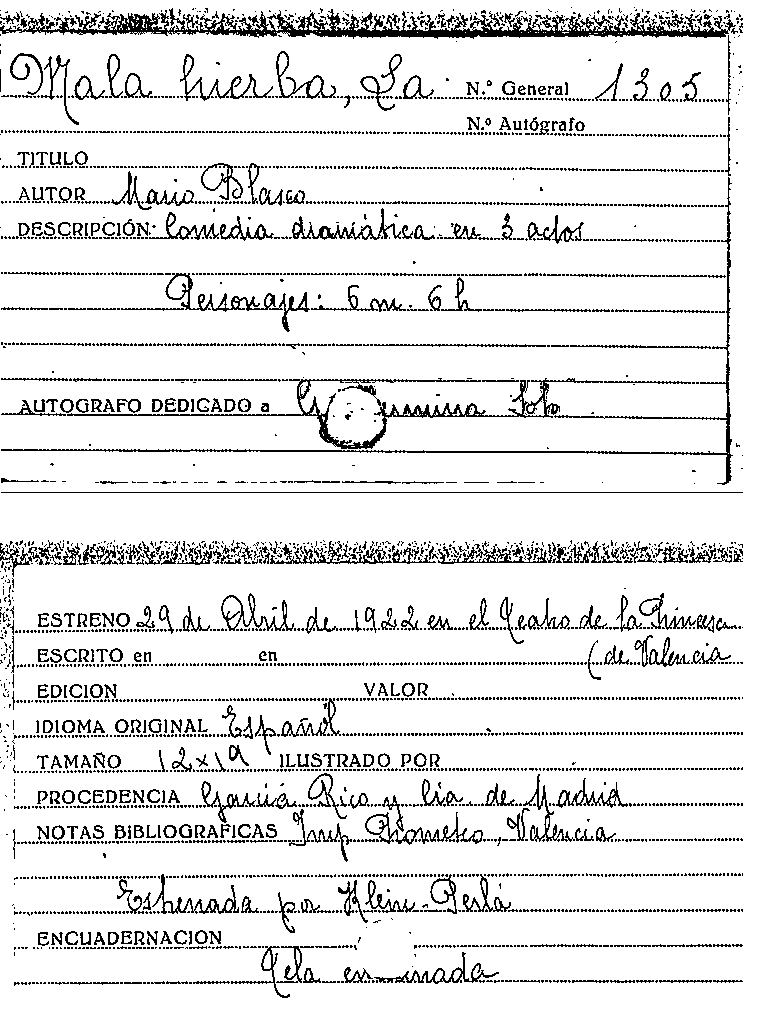 Mala hierba, La. N.º General 1305
N.º Autógrafo
TITULO
AUTOR Mario Blasco
DESCRIPCIÓN Comedia dramática en 3 actos
Personajes: 6 m. 6 h
AUTOGRAFO DEDICADO a
ESTRENO 29 de Abril de 1922 en el Teatro de la Princesa
ESCRITO en en (de Valencia
EDICION VALOR
IDIOMA ORIGINAL Español
TAMAÑO 12x19 ILUSTRADO POR
PROCEDENCIA García Rico y Cia. de Madrid
NOTAS BIBLIOGRAFICAS Imp Prometeo, Valencia
Estrenada por Klein-Perlá
ENCUADERNACION
Tela